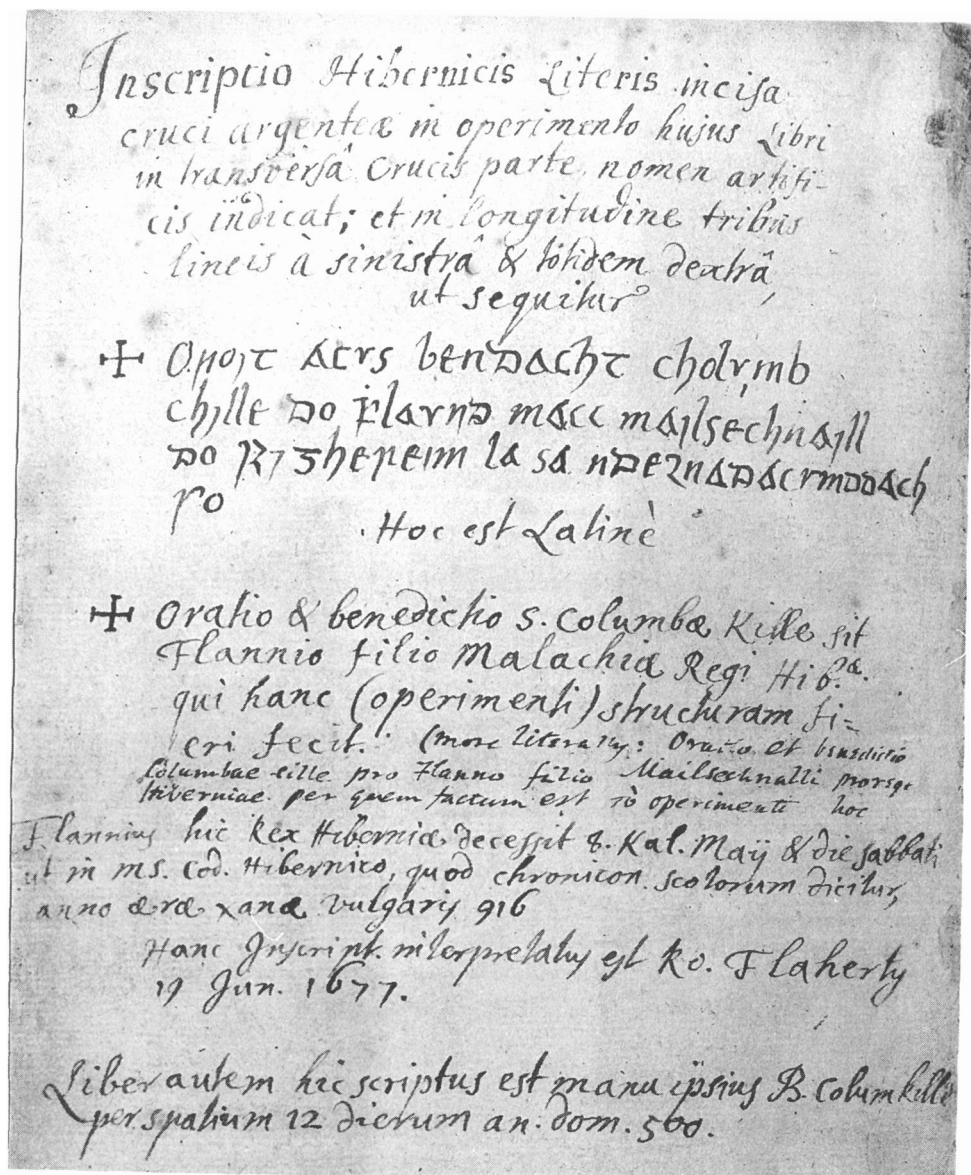 Inscriptio Hibernicis Literis incisa
cruci argenteæ in operimento hujus Libri
in transversâ Crucis parte, nomen artifi-
cis indicat; et in longitudine tribus
lineis à sinistrâ & totidem dextrâ,
ut sequitur
✠ Oroit acus bendacht cholumb
chille do Flaund macc mailsechnaill
do Righerenn la sa ndernadacumddach
so
Hoc est Latinè
✠ Oratio & benedictio S. Columbæ Kille sit
Flannio filio Malachiæ Regi Hib.æ
qui hanc (operimenti) structuram fi=
eri fecit. (more literally: Oratio et benedictio
Columbae cille pro Flanno filio Mailsechnalli
Hiberniae per quem factum est operimenti hoc
Flannius hic Rex Hiberniæ decessit 8. Kal. Maij & die sabbati
ut in ms. Cod. Hibernico, quod chronicon scotorum dicitur,
anno æræ xanæ vulgaris 916
Hanc Inscript. interpretatus est Ro. Flaherty
19 Jun. 1677.
Liber autem hic scriptus est manu ipsius B. Columkille
per spatium 12 dierum an. dom. 500.